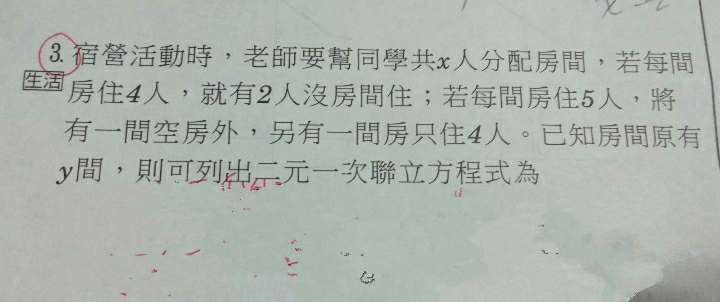 3. 宿營活動時，老師要幫同學共x人分配房間，若每間
生活
房住4人，就有2人沒房間住；若每間房住5人，將
有一間空房外，另有一間房只住4人。已知房間原有
y間，則可列出二元一次聯立方程式為